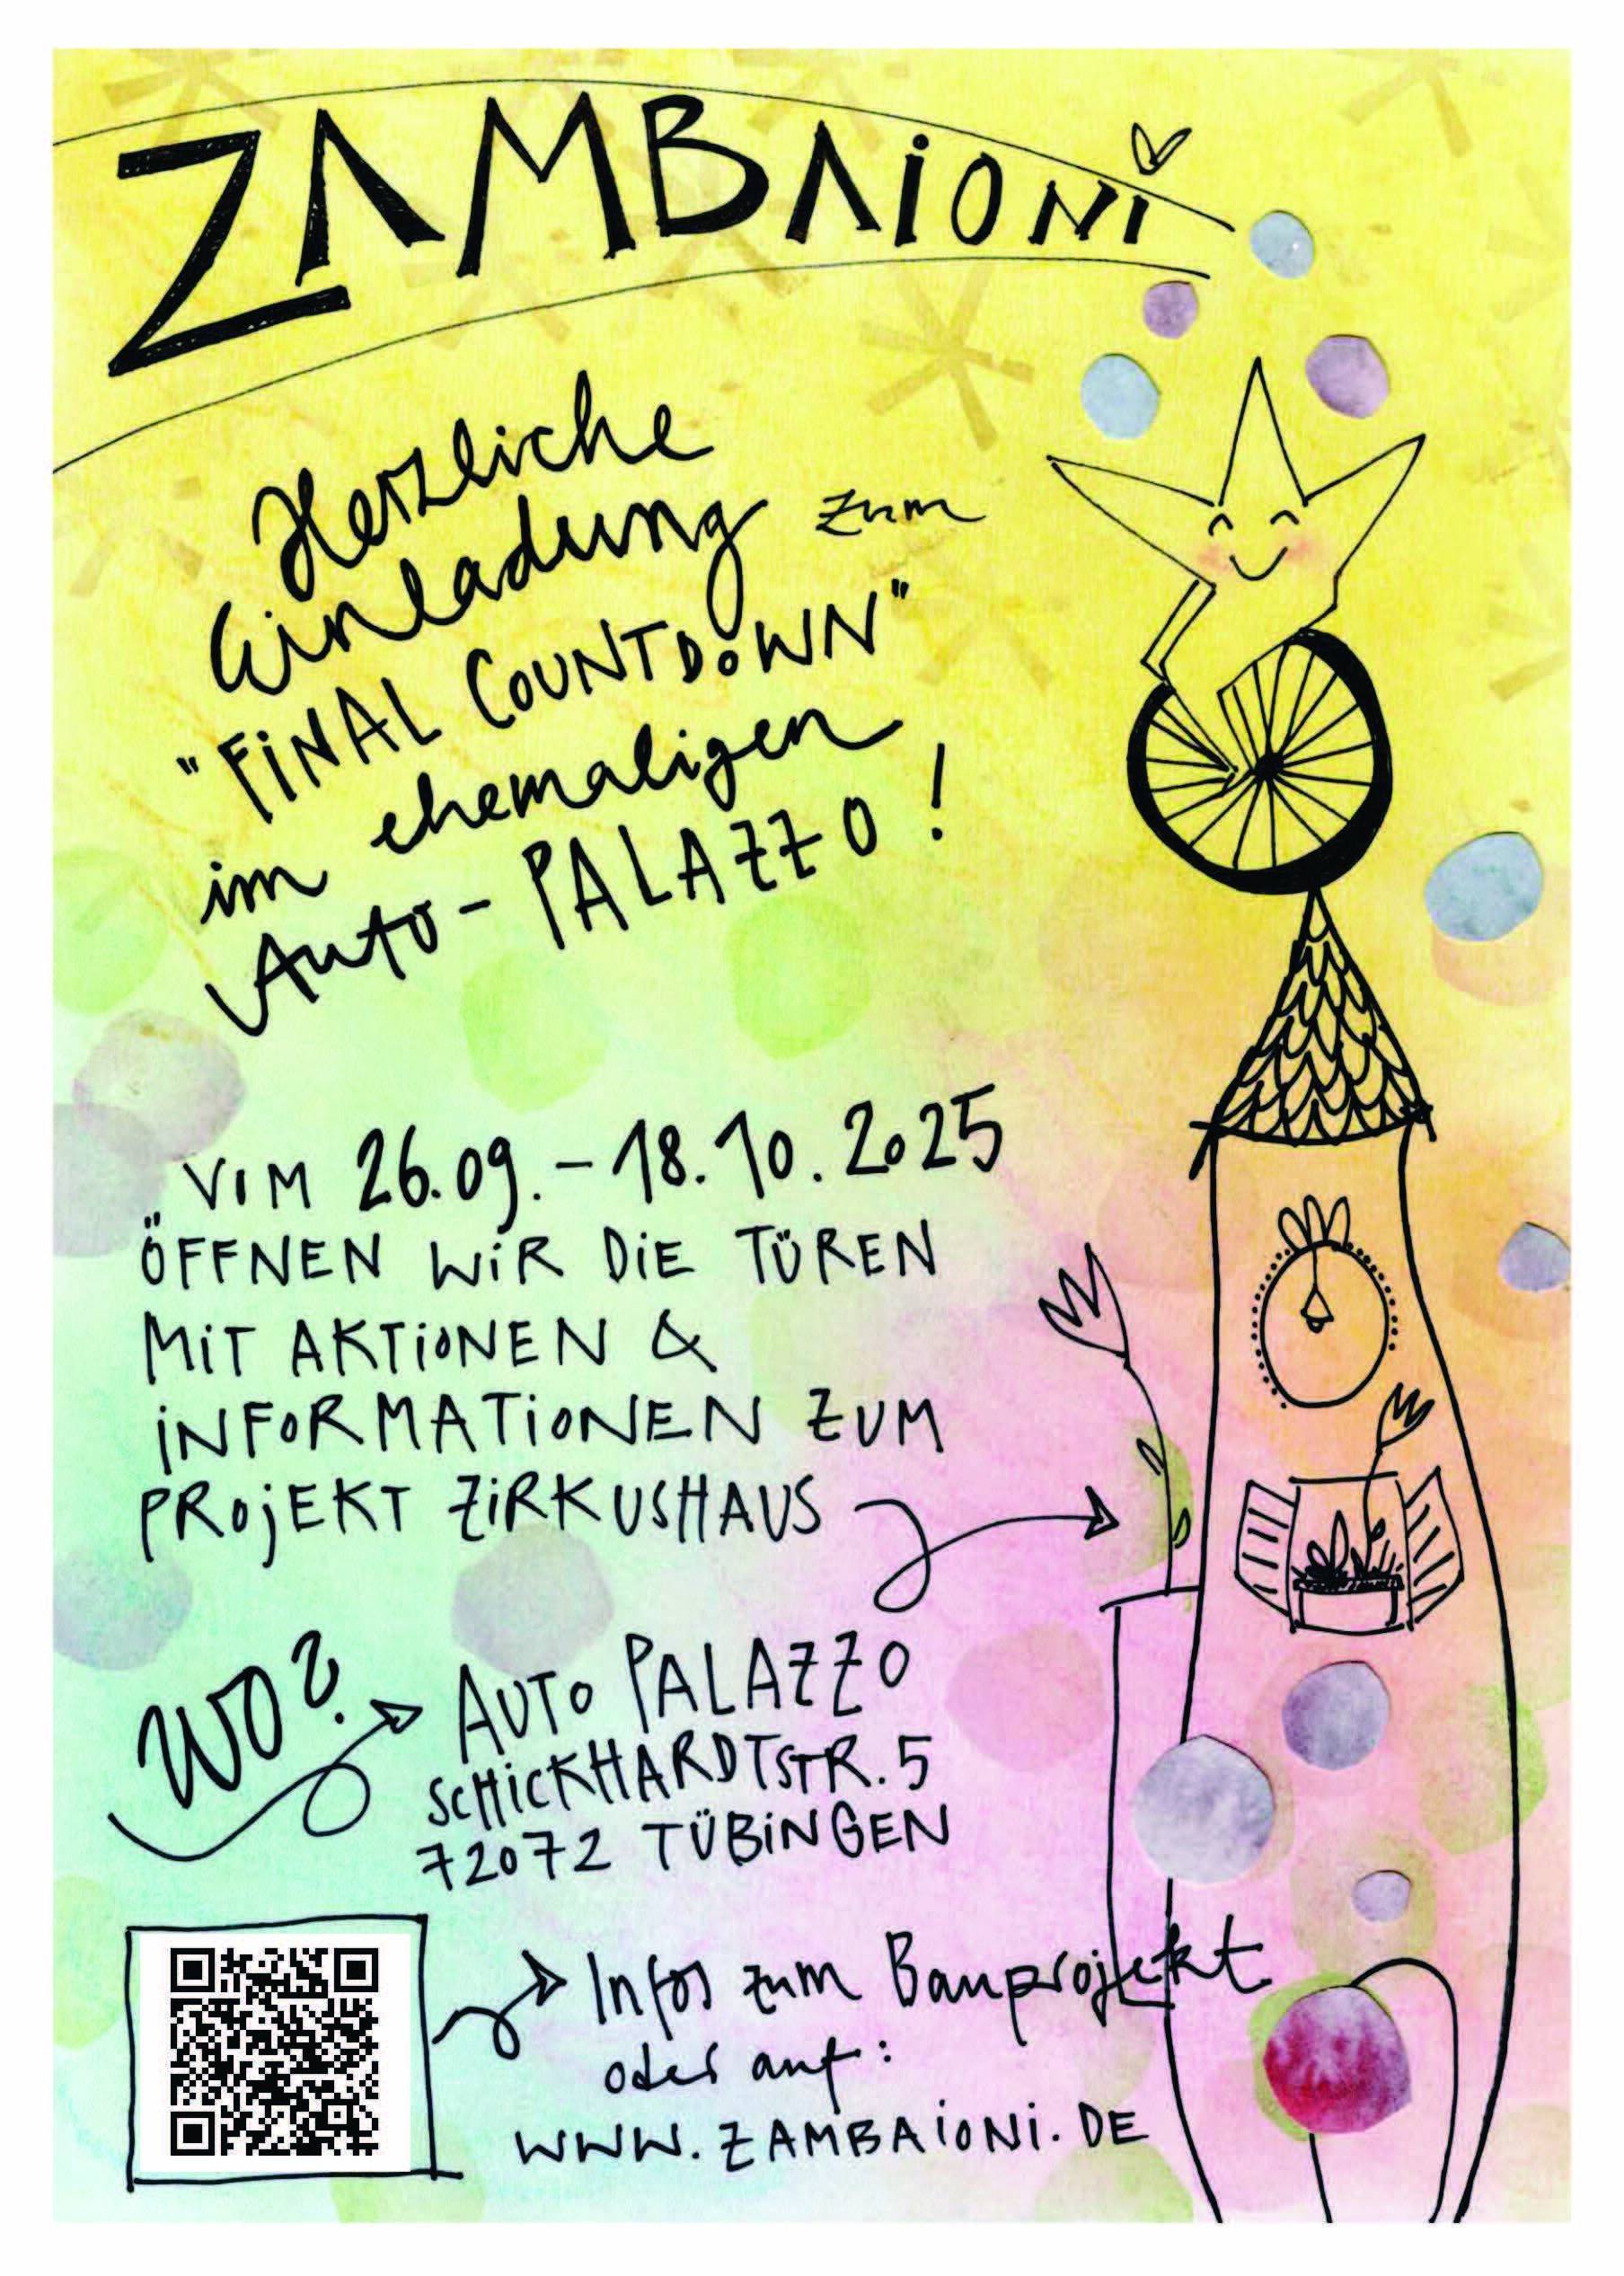 ZAMBAIONI
Herzliche
Einladung zum
"FINAL COUNTDOWN"
im ehemaligen
Auto-PALAZZO!
VIM 26.09.-18.10.2025
ÖFFNEN WIR DIE TÜREN
MIT AKTIONEN &
INFORMATIONEN ZUM
PROJEKT ZIRKUSHAUS
WO?
AUTO PALAZZO
SCHICKHARDTSTR. 5
72072 TÜBINGEN
Infos zum Bauprojekt
oder auf:
WWW.ZAMBAIONI.DE